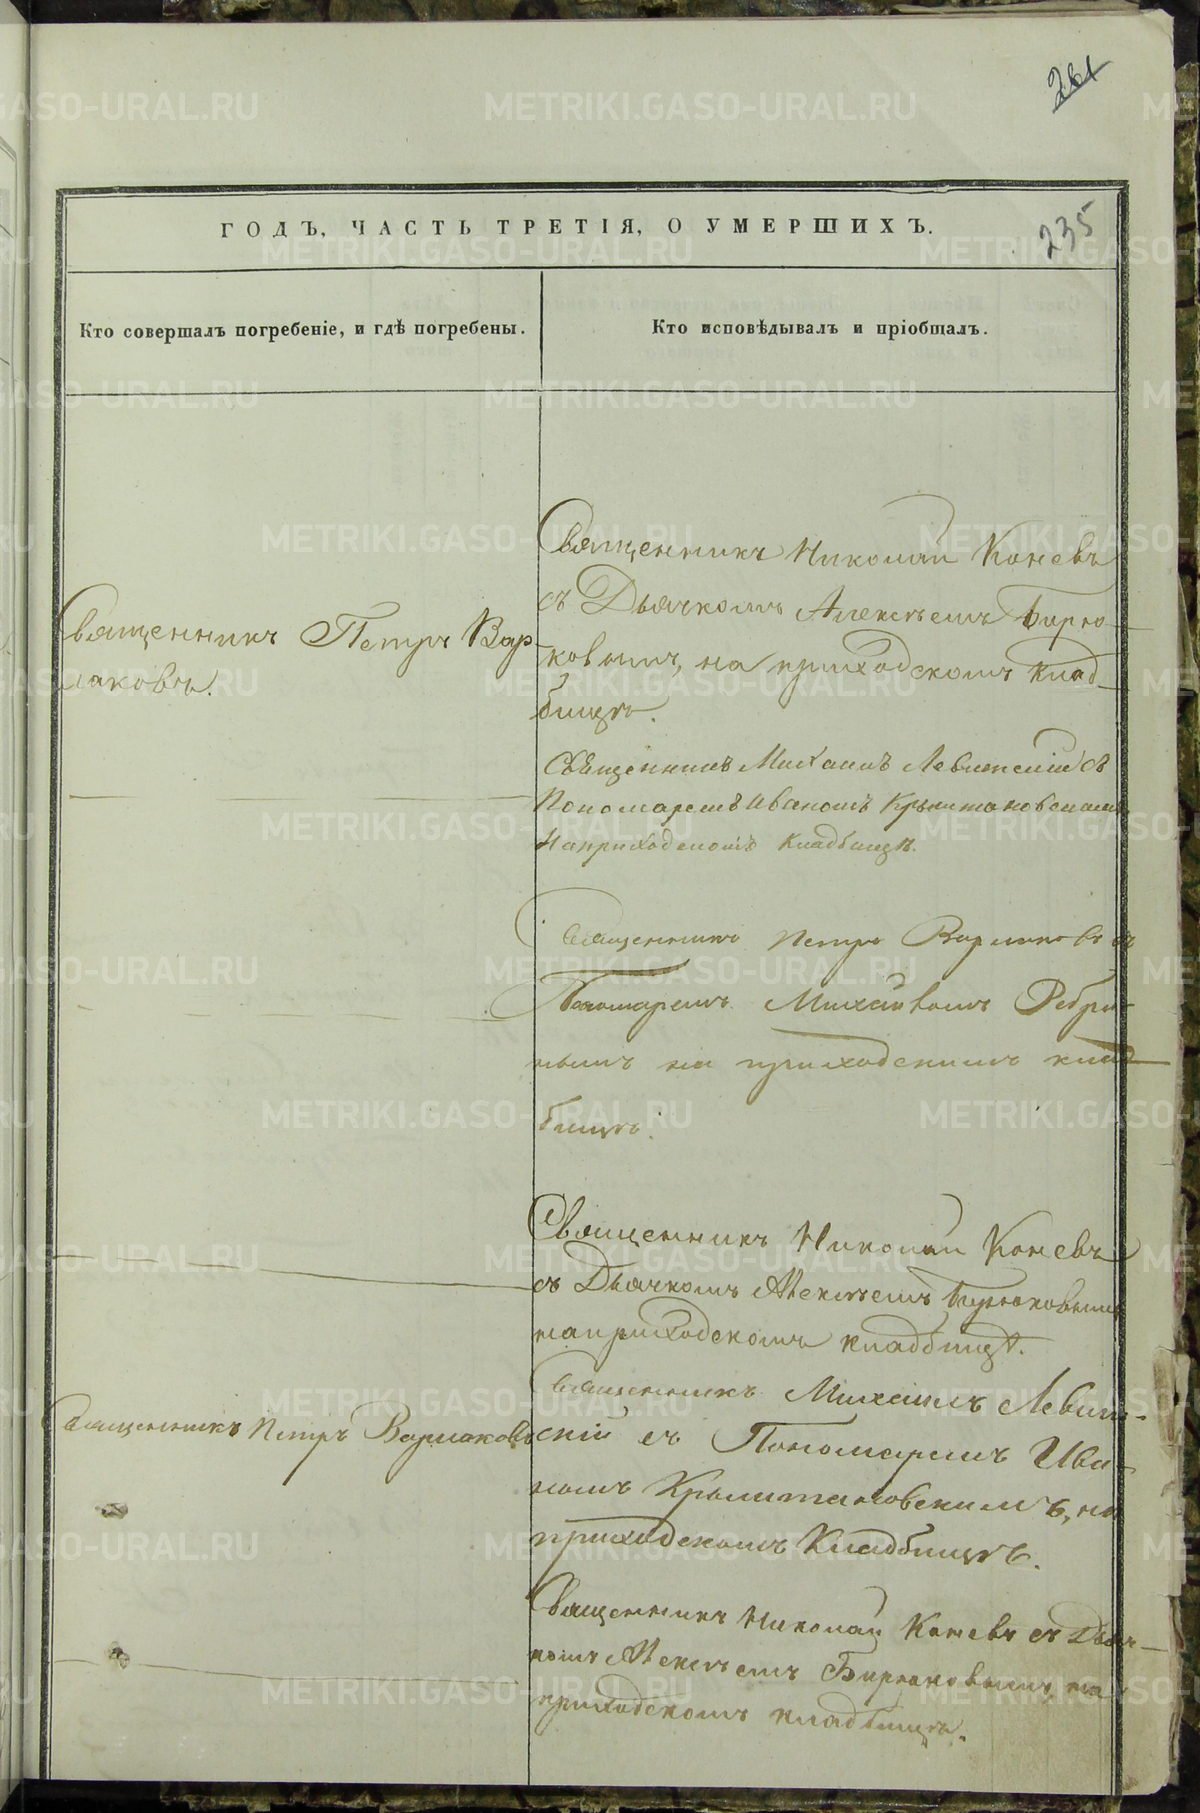 261
235
ГОДЪ, ЧАСТЬ ТРЕТІЯ, О УМЕРШИХЪ.
Кто совершалъ погребеніе, и гдѣ погребены.
Кто исповѣдывалъ и пріобщалъ.
Священникъ Петръ Вар
лаковъ.
Священникъ Николай Коневъ
съ Дьячкомъ Алексѣемъ Бирю-
ковымъ, на приходскомъ клад-
бищѣ.
Священникъ Михаилъ Левитскій съ
Пономаремъ Иваномъ
На приходскомъ кладбищѣ.
Священникъ Петръ Варлаковъ съ
Пономаремъ Михаиломъ Ребри-
нымъ на приходскимъ клад-
бищѣ.
Священникъ Николай Коневъ
съ Дьячкомъ Алексѣемъ Бирюковымъ
на приходскомъ кладбищѣ.
Священникъ Петръ Варлаковъ
Священникъ Михаилъ Левит-
скій съ Пономаремъ Ива-
номъ на
приходскомъ Кладбищѣ.
Священникъ Николай Коневъ съ Дьяч-
комъ Алексѣемъ Бирюковымъ, на
приходскомъ кладбищѣ.
METRIKI.GASO-URAL.RU